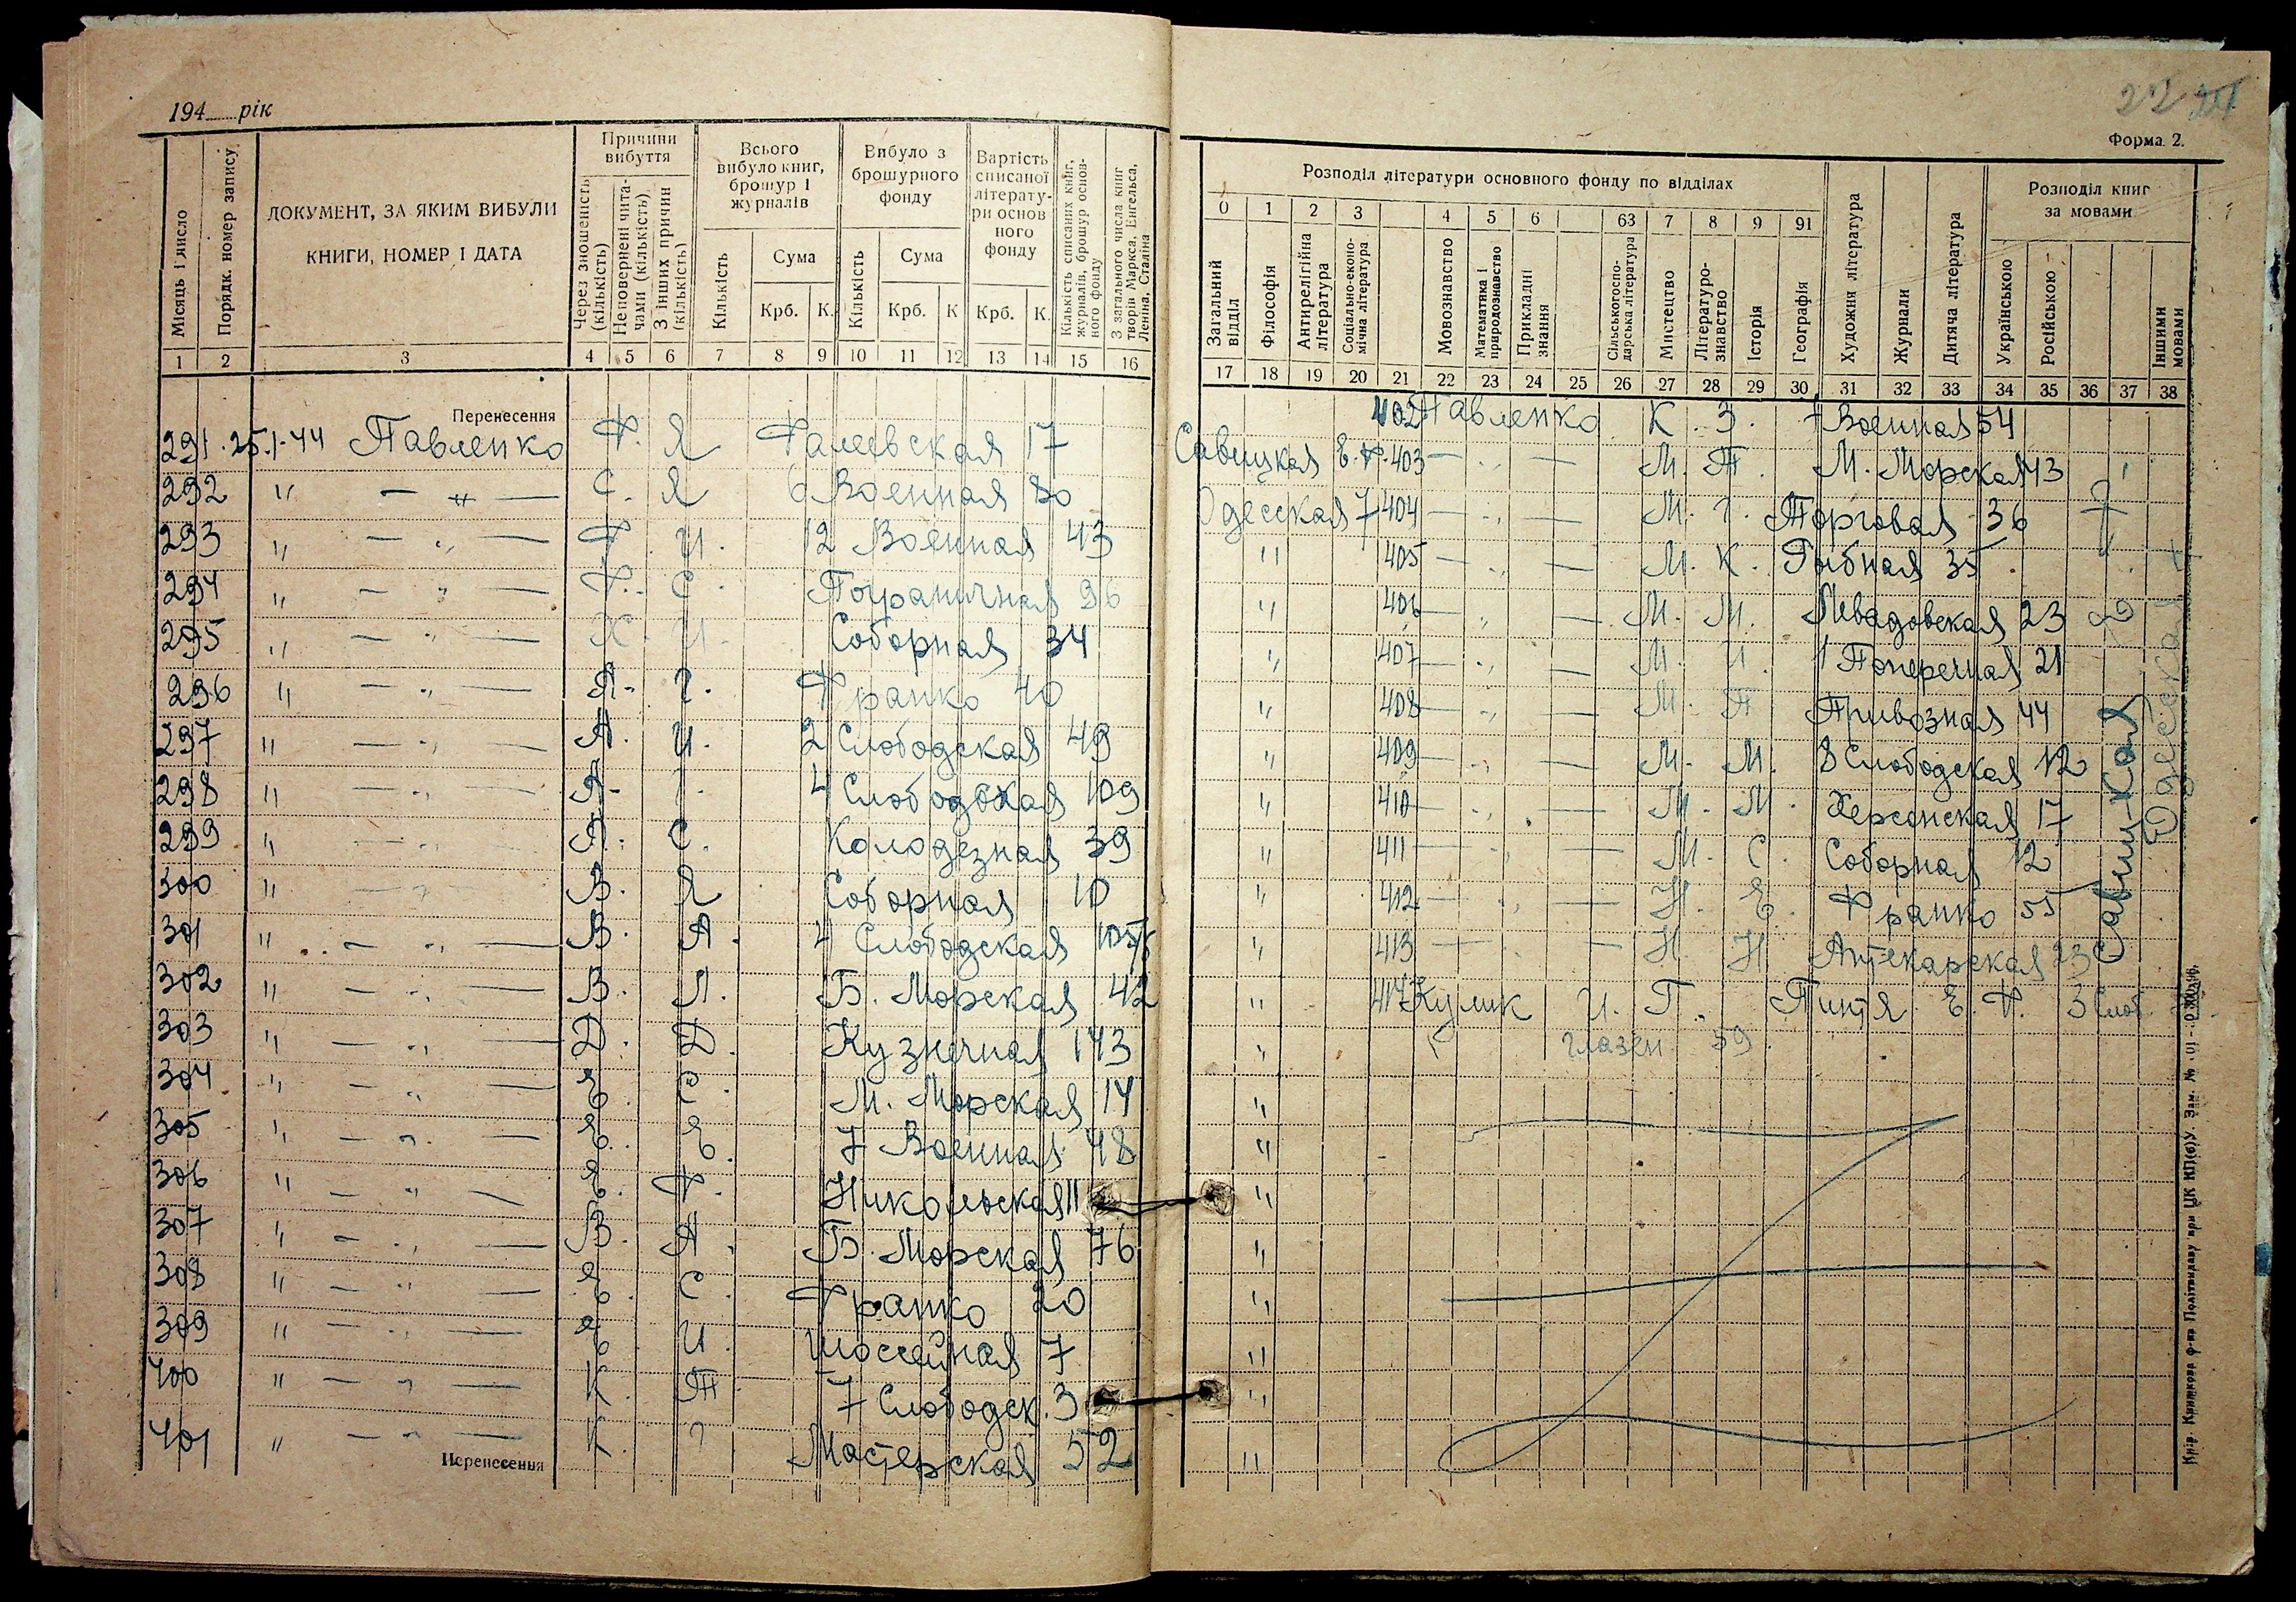 194 рік
Причини вибуття
Всього вибуло книг, брошур і журналів
Вибуло з брошурного фонду
Вартість списаної літератури основного фонду
Місяць і число
Порядк. номер запису
ДОКУМЕНТ, ЗА ЯКИМ ВИБУЛИ
КНИГИ, НОМЕР І ДАТА
Через зношеність (кількість)
Неповернені читачами (кількість)
З інших причин (кількість)
Кількість
Сума
Крб. К.
Кількість
Сума
Крб. К
Крб. К.
Кількість списаних книг, журналів, брошур основного фонду
З загального числа книг творів Маркса, Енгельса, Леніна, Сталіна
1 2 3 4 5 6 7 8 9 10 11 12 13 14 15 16
Перенесення
291 25.1-44 Павленко Ф. Я Фалеевская 17
292 " — " — С. Я 6 Военная 80
293 " — " — Ф. И. 12 Военная 43
294 " — " — Ф. С. Пограничная 96
295 " — " — Х. И. Соборная 34
296 " — " — А. Г. Франко 40
297 " — " — А. И. 2 Слободская 49
298 " — " — А. Г. 4 Слободская 109
299 " — " — А. С. Колодезная 39
300 " — " — В. Я Соборная 10
301 " — " — В. А. 4 Слободская
302 " — " — В. Л. Б. Морская 42
303 " — " — Д. Д. Кузнечная 143
304 " — " — Е. С. М. Морская 14
305 " — " — Е. Е. 7 Военная 48
306 " — " — Е. Ф. Никольская 11
307 " — " — В. А. Б. Морская 76
308 " — " — Е. С. Франко 20
309 " — " — Е. И. Шоссейная 7
400 " — " — К. П. 7 Слободск. 3
401 " — " — К. Г Мастерская 52
Перенесення
22
Форма 2.
Розподіл літератури основного фонду по відділах
Розподіл книг за мовами
0 1 2 3 4 5 6 63 7 8 9 91
Загальний відділ
Філософія
Антирелігійна література
Соціально-економічна література
Мовознавство
Математика і природознавство
Прикладні знання
Сільськогосподарська література
Мистецтво
Літературознавство
Історія
Географія
Художня література
Журнали
Дитяча література
Українською
Російською
Іншими мовами
17 18 19 20 21 22 23 24 25 26 27 28 29 30 31 32 33 34 35 36 37 38
402 Павленко К. З. 7 Военная 54
Савицкая Е. Ф. 403 — " — М. П. М. Морская 43
Одесская 7 404 — " — М. Г. Торговая 36
" 405 — " — М. К. Рыбная 35
" 406 — " — М. М. Левадовская 23
" 407 — " — М. И. 1 Поперечная 21
" 408 — " — М. П Привозная 44
" 409 — " — М. М. 8 Слободская 12
" 410 — " — М. М. Херсонская 17
" 411 — " — М. С. Соборная 12
" 412 — " — Н. Е. Франко 55
" 413 — " — Н. Н Аптекарская 23
" 414 Кулик И. П. Е. Ф. 3 Слоб.
" 59
"
"
"
"
"
"
"
"
Савицкая
Одесская 7